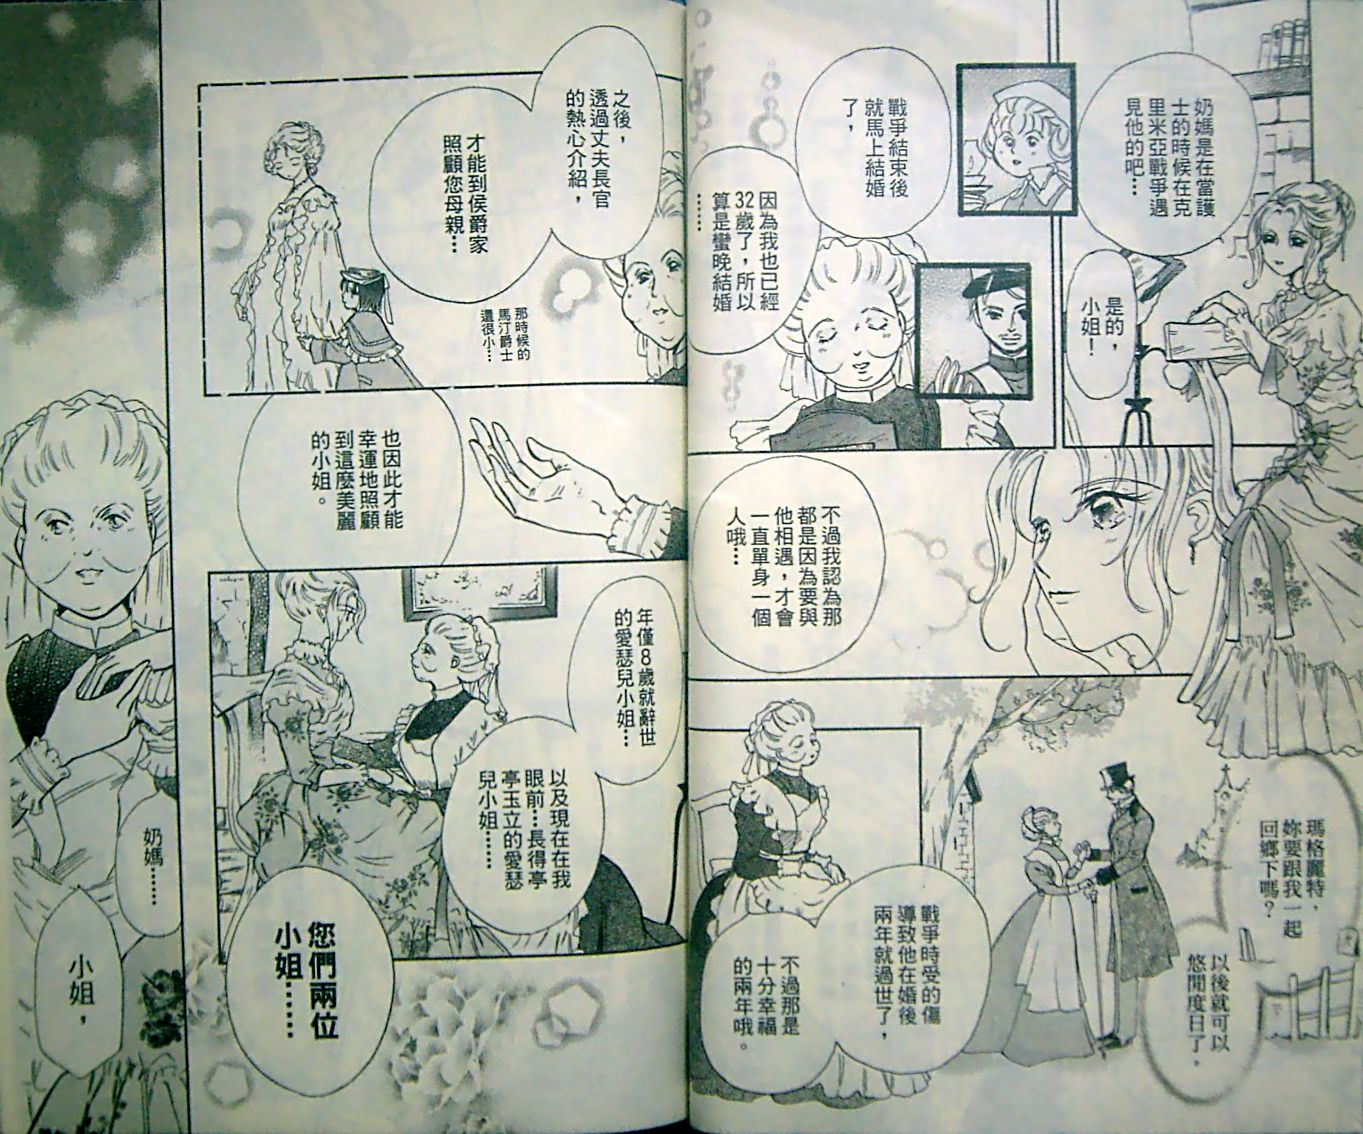 奶媽是在當護
士的時候在克
里米亞戰爭遇
見他的吧…
是的，
小姐！
戰爭結束後
就馬上結婚
了，
因為我也已經
32歲了，所以
算是蠻晚結婚
……
不過我認為那
都是因為要與
他相遇，才會
一直單身一個
人哦…
瑪格麗特，
妳要跟我一起
回鄉下嗎？
以後就可以
悠閒度日了。
戰爭時受的傷
導致他在婚後
兩年就過世了，
不過那是
十分幸福
的兩年哦。
之後，
透過丈夫長官
的熱心介紹，
才能到侯爵家
照顧您母親…
那時候的
馬汀爵士
還很小…
也因此才能
幸運地照顧
到這麼美麗
的小姐。
年僅8歲就辭世
的愛瑟兒小姐…
以及現在在我
眼前…長得亭
亭玉立的愛瑟
兒小姐……
您們兩位
小姐……
奶媽……
小姐，